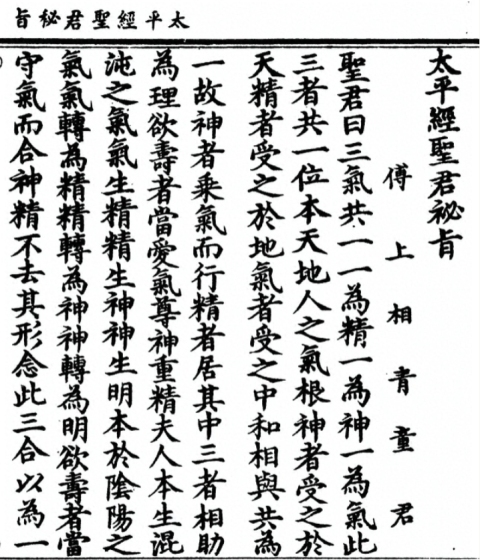 太平經聖君秘旨
太平經聖君祕旨
傅上相青童君
聖君曰三氣共一一為精一為神一為氣此
三者共一位本天地人之氣根神者受之於
天精者受之於地氣者受之中和相與共為
一故神者乘氣而行精者居其中三者相助
為理欲壽者當愛氣尊神重精夫人本生混
沌之氣氣生精精生神神生明本於陰陽之
氣氣轉為精精轉為神神轉為明欲壽者當
守氣而合神精不去其形念此三合以為一